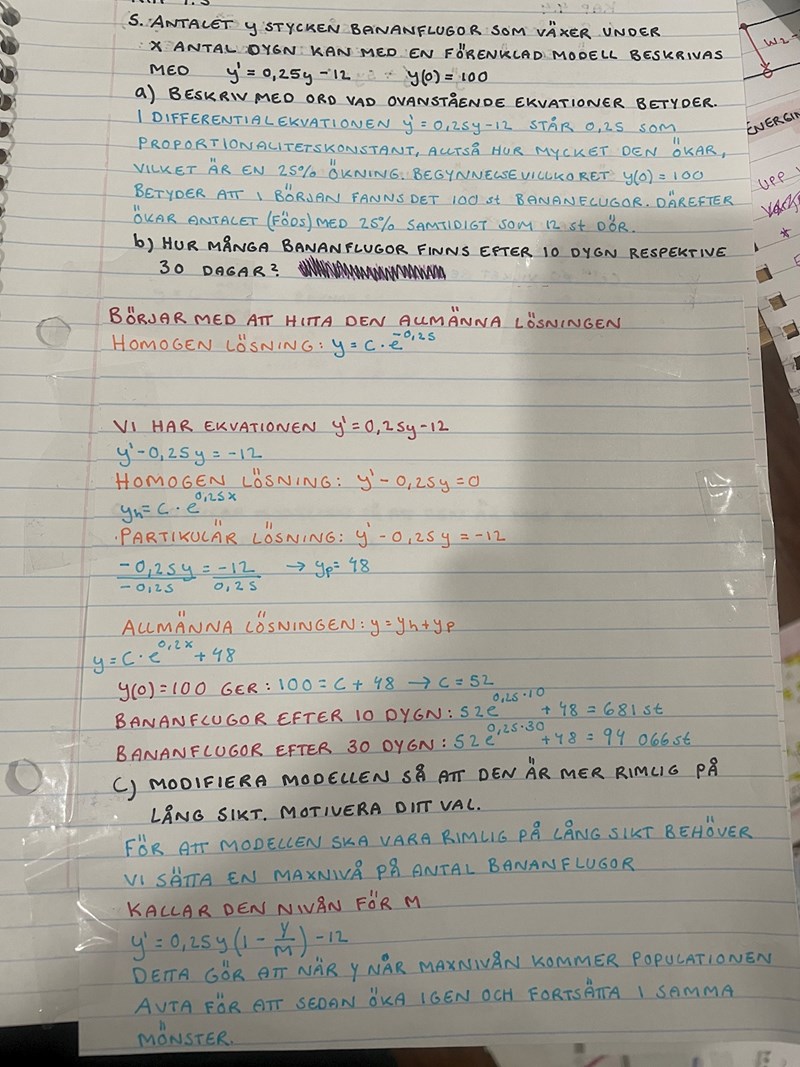 5. ANTALET y STYCKEN BANANFLUGOR SOM VÄXER UNDER
X ANTAL DYGN KAN MED EN FÖRENKLAD MODELL BESKRIVAS
MED y' = 0,25y - 12 y(0) = 100
a) BESKRIV MED ORD VAD OVANSTÅENDE EKVATIONER BETYDER.
I DIFFERENTIALEKVATIONEN y' = 0,25y - 12 STÅR 0,25 SOM
PROPORTIONALITETSKONSTANT, ALLTSÅ HUR MYCKET DEN ÖKAR,
VILKET ÄR EN 25% ÖKNING. BEGYNNELSEVILLKORET y(0) = 100
BETYDER ATT I BÖRJAN FANNS DET 100 st BANANFLUGOR. DÄREFTER
ÖKAR ANTALET (FÖDS) MED 25% SAMTIDIGT SOM 12 st DÖR.
b) HUR MÅNGA BANANFLUGOR FINNS EFTER 10 DYGN RESPEKTIVE
30 DAGAR?
BÖRJAR MED ATT HITTA DEN ALLMÄNNA LÖSNINGEN
HOMOGEN LÖSNING: y = C · e^-0,25
VI HAR EKVATIONEN y' = 0,25y - 12
y' - 0,25y = -12
HOMOGEN LÖSNING: y' - 0,25y = 0
yh = C · e^0,25x
PARTIKULÄR LÖSNING: y' - 0,25y = -12
-0,25y/-0,25 = -12/0,25 → yp = 48
ALLMÄNNA LÖSNINGEN: y = yh + yp
y = C · e^0,2x + 48
y(0) = 100 GER: 100 = C + 48 → C = 52
BANANFLUGOR EFTER 10 DYGN: 52e^0,25·10 + 48 = 681 st
BANANFLUGOR EFTER 30 DYGN: 52e^0,25·30 + 48 = 94 066 st
C) MODIFIERA MODELLEN SÅ ATT DEN ÄR MER RIMLIG PÅ
LÅNG SIKT. MOTIVERA DITT VAL.
FÖR ATT MODELLEN SKA VARA RIMLIG PÅ LÅNG SIKT BEHÖVER
VI SÄTTA EN MAXNIVÅ PÅ ANTAL BANANFLUGOR
KALLAR DEN NIVÅN FÖR M
y' = 0,25y (1 - y/M) - 12
DETTA GÖR ATT NÄR Y NÅR MAXNIVÅN KOMMER POPULATIONEN
AVTA FÖR ATT SEDAN ÖKA IGEN OCH FORTSÄTTA I SAMMA
MÖNSTER.
W2
ENERGIN
UPP